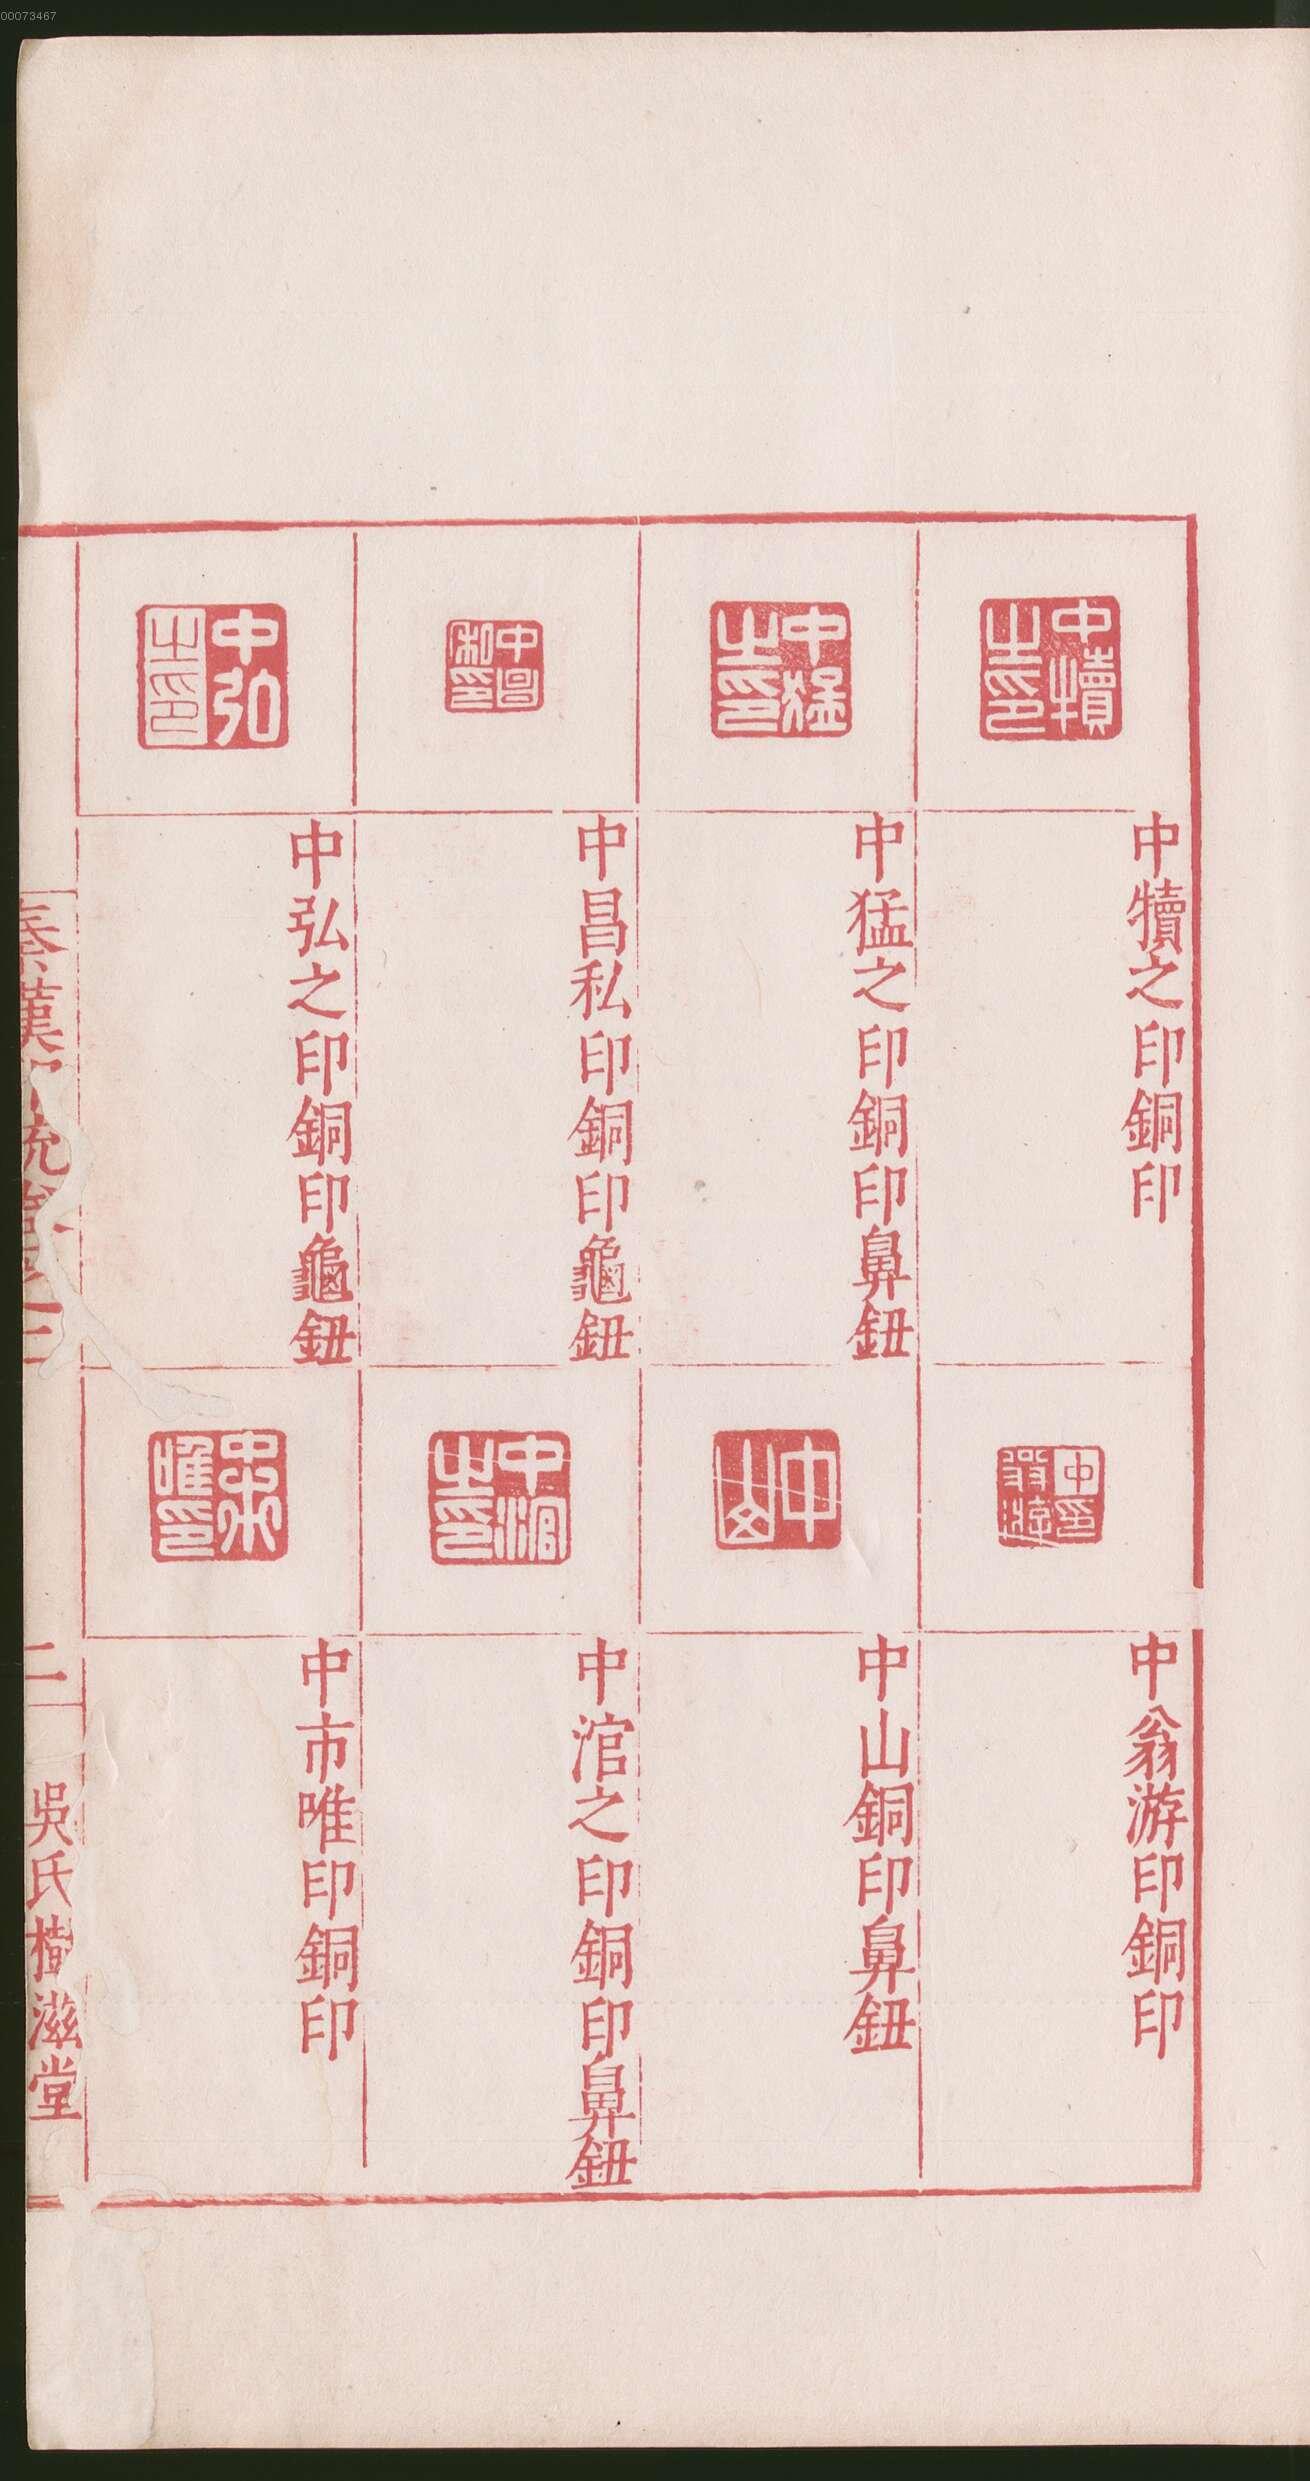 00073467
中犢之印銅印
中猛之印銅印鼻鈕
中昌私印銅印龜鈕
中弘之印銅印龜鈕
中翁游印銅印
中山銅印鼻鈕
中涫之印銅印鼻鈕
中市唯印銅印
秦漢印統卷之二
二
吳氏樹滋堂
中犢之印
中猛之印
中昌私印
中弘之印
中翁游印
中山
中涫之印
中市唯印